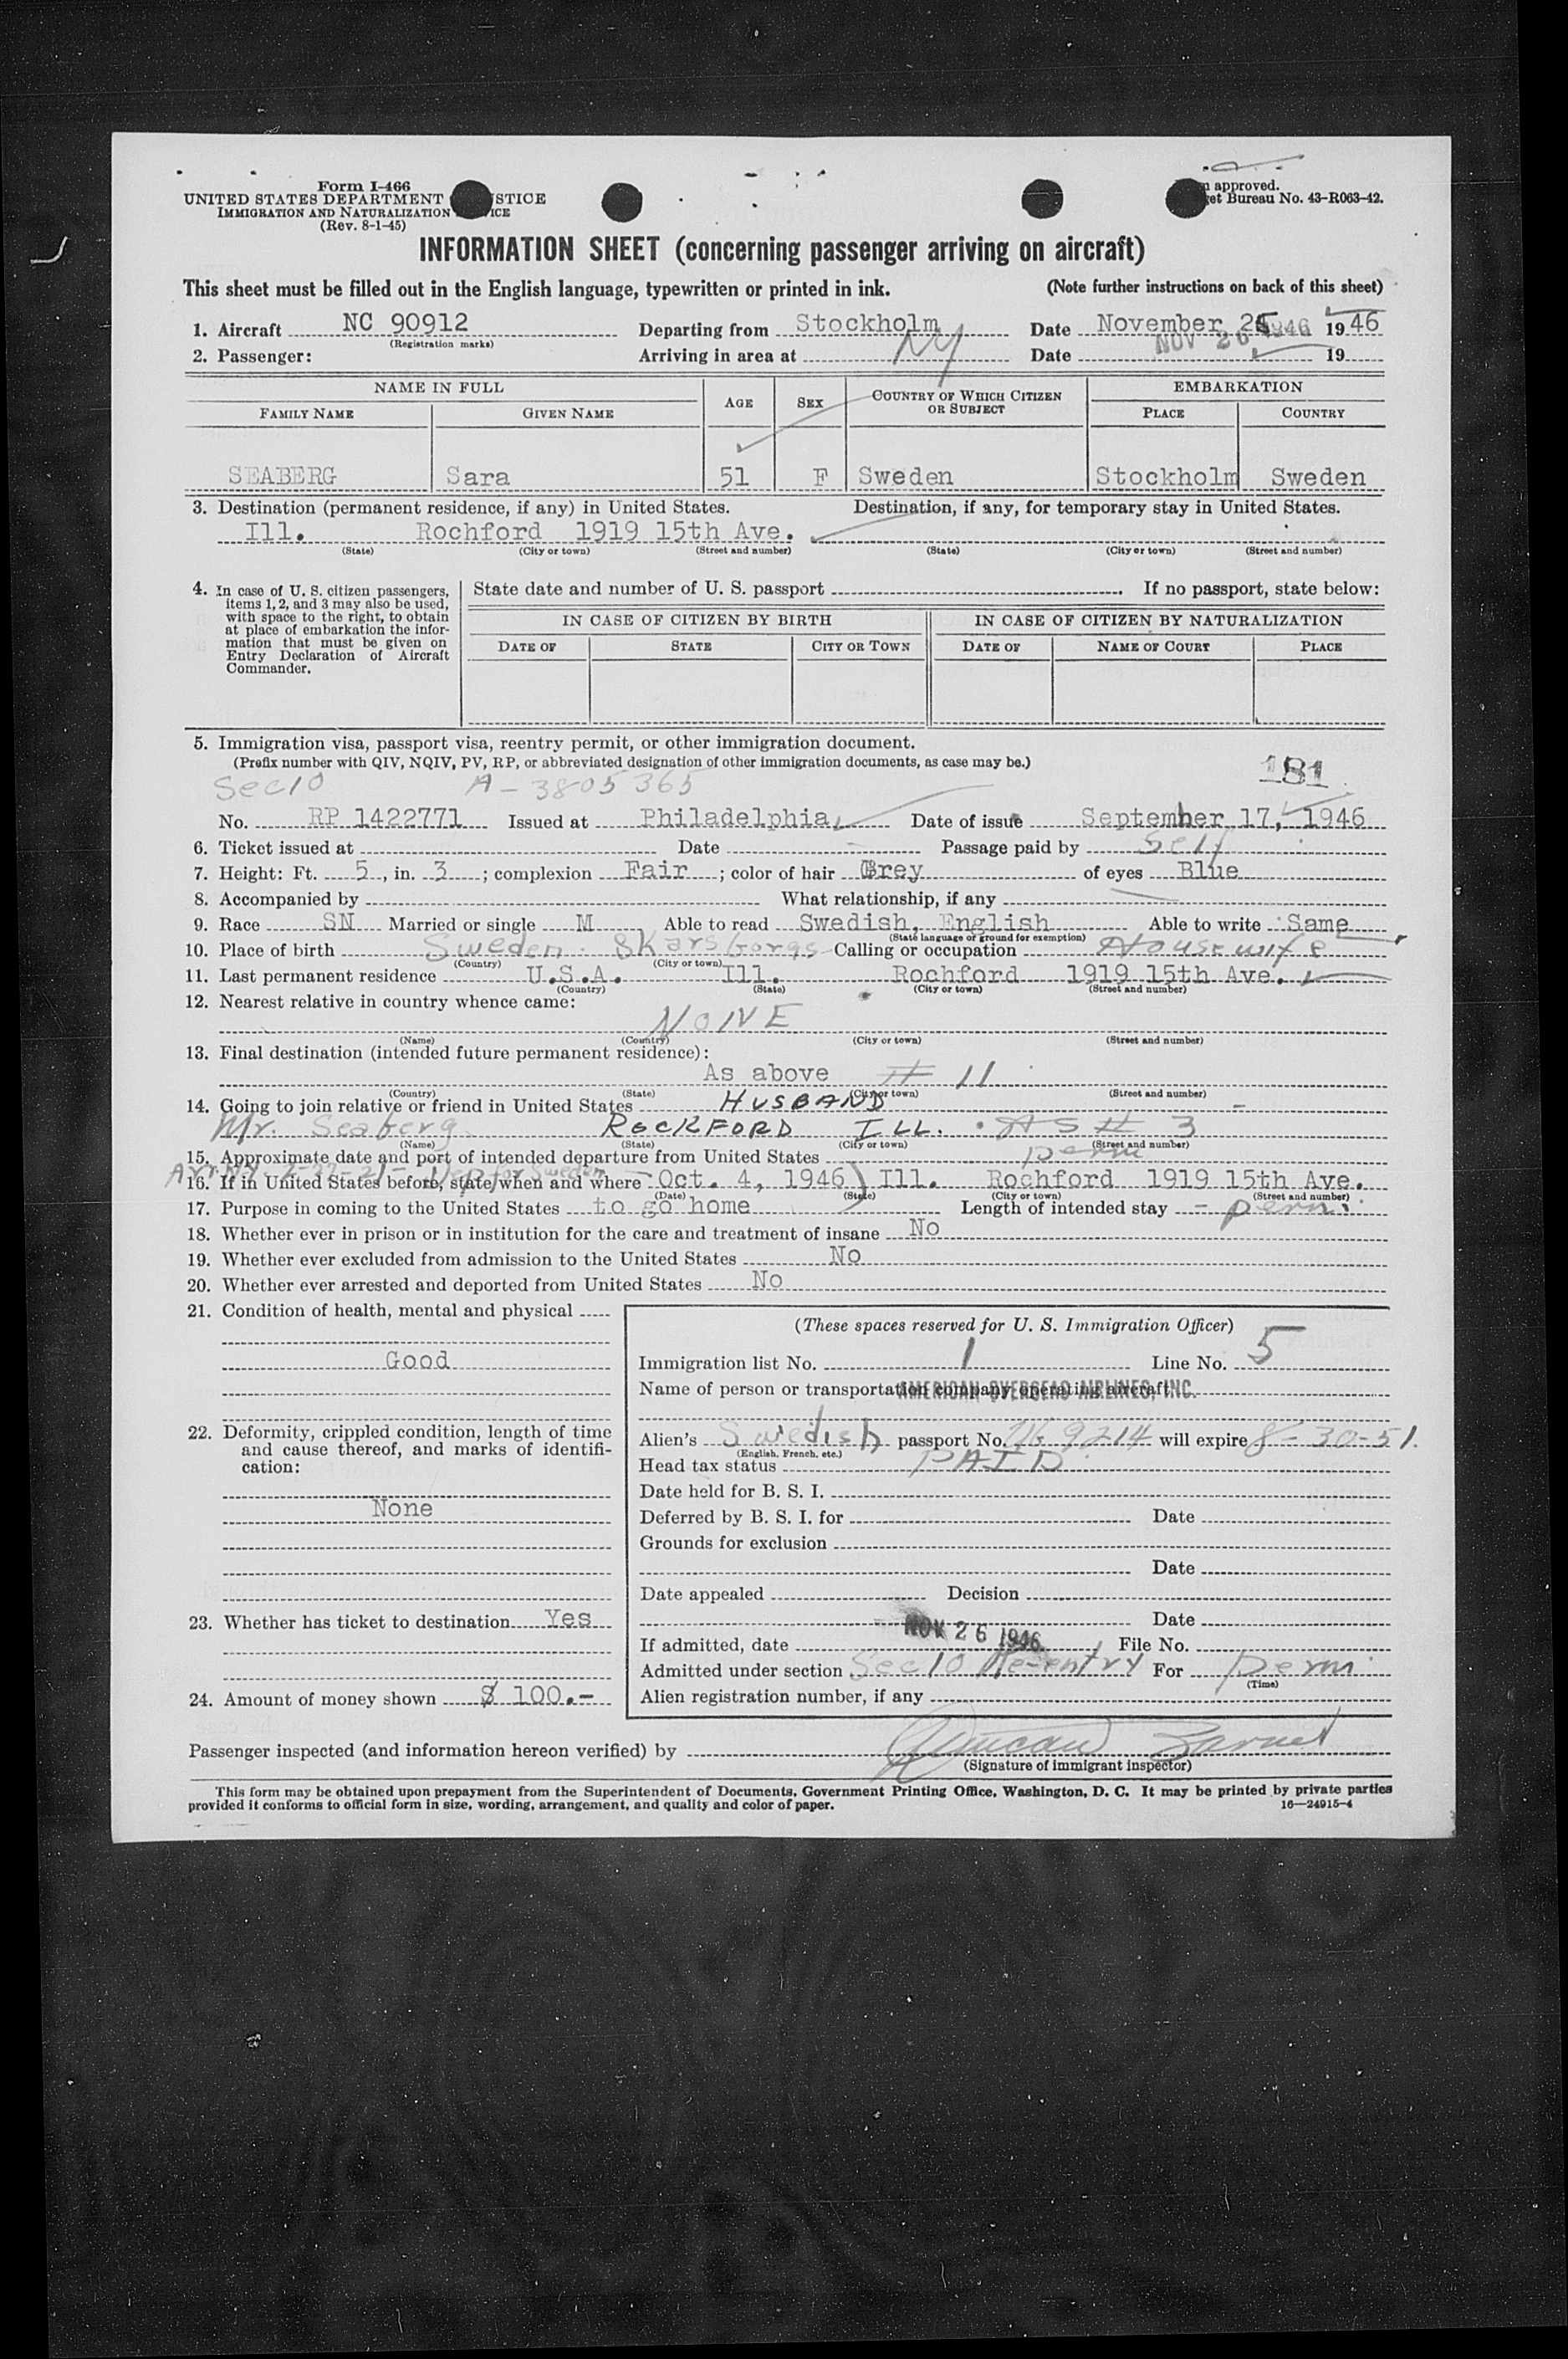 Form I-466
UNITED STATES DEPARTMENT STICE
IMMIGRATION AND NATURALIZATION ICE
(Rev. 8-1-45)
approved.
et Bureau No. 43-R063-42.
INFORMATION SHEET (concerning passenger arriving on aircraft)
This sheet must be filled out in the English language, typewritten or printed in ink. (Note further instructions on back of this sheet)
1. Aircraft NC 90912 Departing from Stockholm Date November 1946
(Registration marks)
NOV 26 1946
2. Passenger: Arriving in area at NY Date 19
NAME IN FULL AGE SEX COUNTRY OF WHICH CITIZEN OR SUBJECT EMBARKATION
FAMILY NAME GIVEN NAME PLACE COUNTRY
SEABERG Sara 51 F Sweden Stockholm Sweden
3. Destination (permanent residence, if any) in United States. Destination, if any, for temporary stay in United States.
Ill. Rochford 1919 15th Ave.
(State) (City or town) (Street and number) (State) (City or town) (Street and number)
4. In case of U. S. citizen passengers, items 1, 2, and 3 may also be used, with space to the right, to obtain at place of embarkation the information that must be given on Entry Declaration of Aircraft Commander.
State date and number of U. S. passport If no passport, state below:
IN CASE OF CITIZEN BY BIRTH IN CASE OF CITIZEN BY NATURALIZATION
DATE OF STATE CITY OR TOWN DATE OF NAME OF COURT PLACE
5. Immigration visa, passport visa, reentry permit, or other immigration document.
(Prefix number with QIV, NQIV, PV, RP, or abbreviated designation of other immigration documents, as case may be.)
181
Sec10 A-3805365
No. RP 1422771 Issued at Philadelphia, Date of issue September 17, 1946
6. Ticket issued at Date Passage paid by Self
7. Height: Ft. 5, in. 3; complexion Fair; color of hair Grey of eyes Blue
8. Accompanied by What relationship, if any
9. Race SN Married or single M Able to read Swedish, English Able to write Same
(State language or ground for exemption)
10. Place of birth Sweden Skarsborgs Calling or occupation Housewife
(Country) (City or town)
11. Last permanent residence U.S.A. Ill. Rochford 1919 15th Ave.
(Country) (State) (City or town) (Street and number)
12. Nearest relative in country whence came:
NONE
(Name) (Country) (City or town) (Street and number)
13. Final destination (intended future permanent residence):
As above # 11
(Country) (State) (City or town) (Street and number)
14. Going to join relative or friend in United States HUSBAND
Mr. Seaberg ROCKFORD ILL. AS # 3
(Name) (State) (City or town) (Street and number)
15. Approximate date and port of intended departure from United States perm
16. If in United States before, state when and where Oct. 4, 1946) Ill. Rochford 1919 15th Ave.
(Date) (State) (City or town) (Street and number)
17. Purpose in coming to the United States to go home Length of intended stay - perm.
18. Whether ever in prison or in institution for the care and treatment of insane No
19. Whether ever excluded from admission to the United States No
20. Whether ever arrested and deported from United States No
21. Condition of health, mental and physical
Good
22. Deformity, crippled condition, length of time and cause thereof, and marks of identification:
None
23. Whether has ticket to destination Yes
24. Amount of money shown $ 100.-
(These spaces reserved for U. S. Immigration Officer)
Immigration list No. 1 Line No. 5
Name of person or transportation company operating aircraft
AMERICAN OVERSEAS AIRLINES, INC.
Alien's Swedish passport No. 9214 will expire 8-30-51.
(English, French, etc.)
Head tax status PAID
Date held for B. S. I.
Deferred by B. S. I. for Date
Grounds for exclusion
Date
Date appealed Decision
Date
If admitted, date NOV 26 1946 File No.
Admitted under section Sec10 Re-entry For Perm
(Time)
Alien registration number, if any
Passenger inspected (and information hereon verified) by
(Signature of immigrant inspector)
This form may be obtained upon prepayment from the Superintendent of Documents, Government Printing Office, Washington, D. C. It may be printed by private parties
provided it conforms to official form in size, wording, arrangement, and quality and color of paper. 16—24915-4